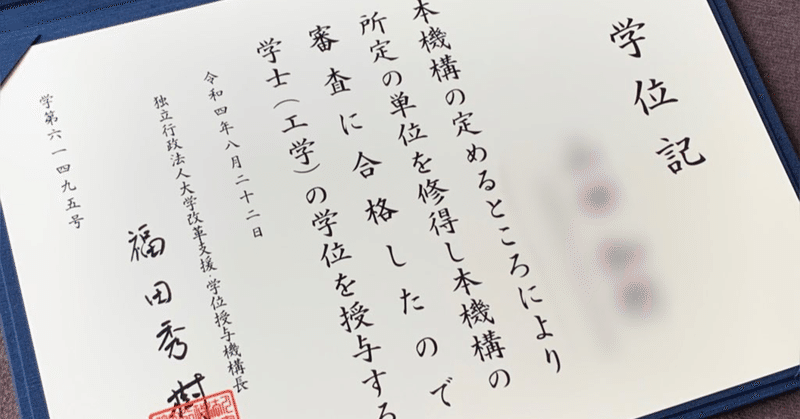 学位記
本機構の定めるところにより
所定の単位を修得し本機構の
審査に合格したので
学士（工学）の学位を授与する
令和四年八月二十二日
独立行政法人大学改革支援・学位授与機構長
福田秀樹
学第六一四九五号